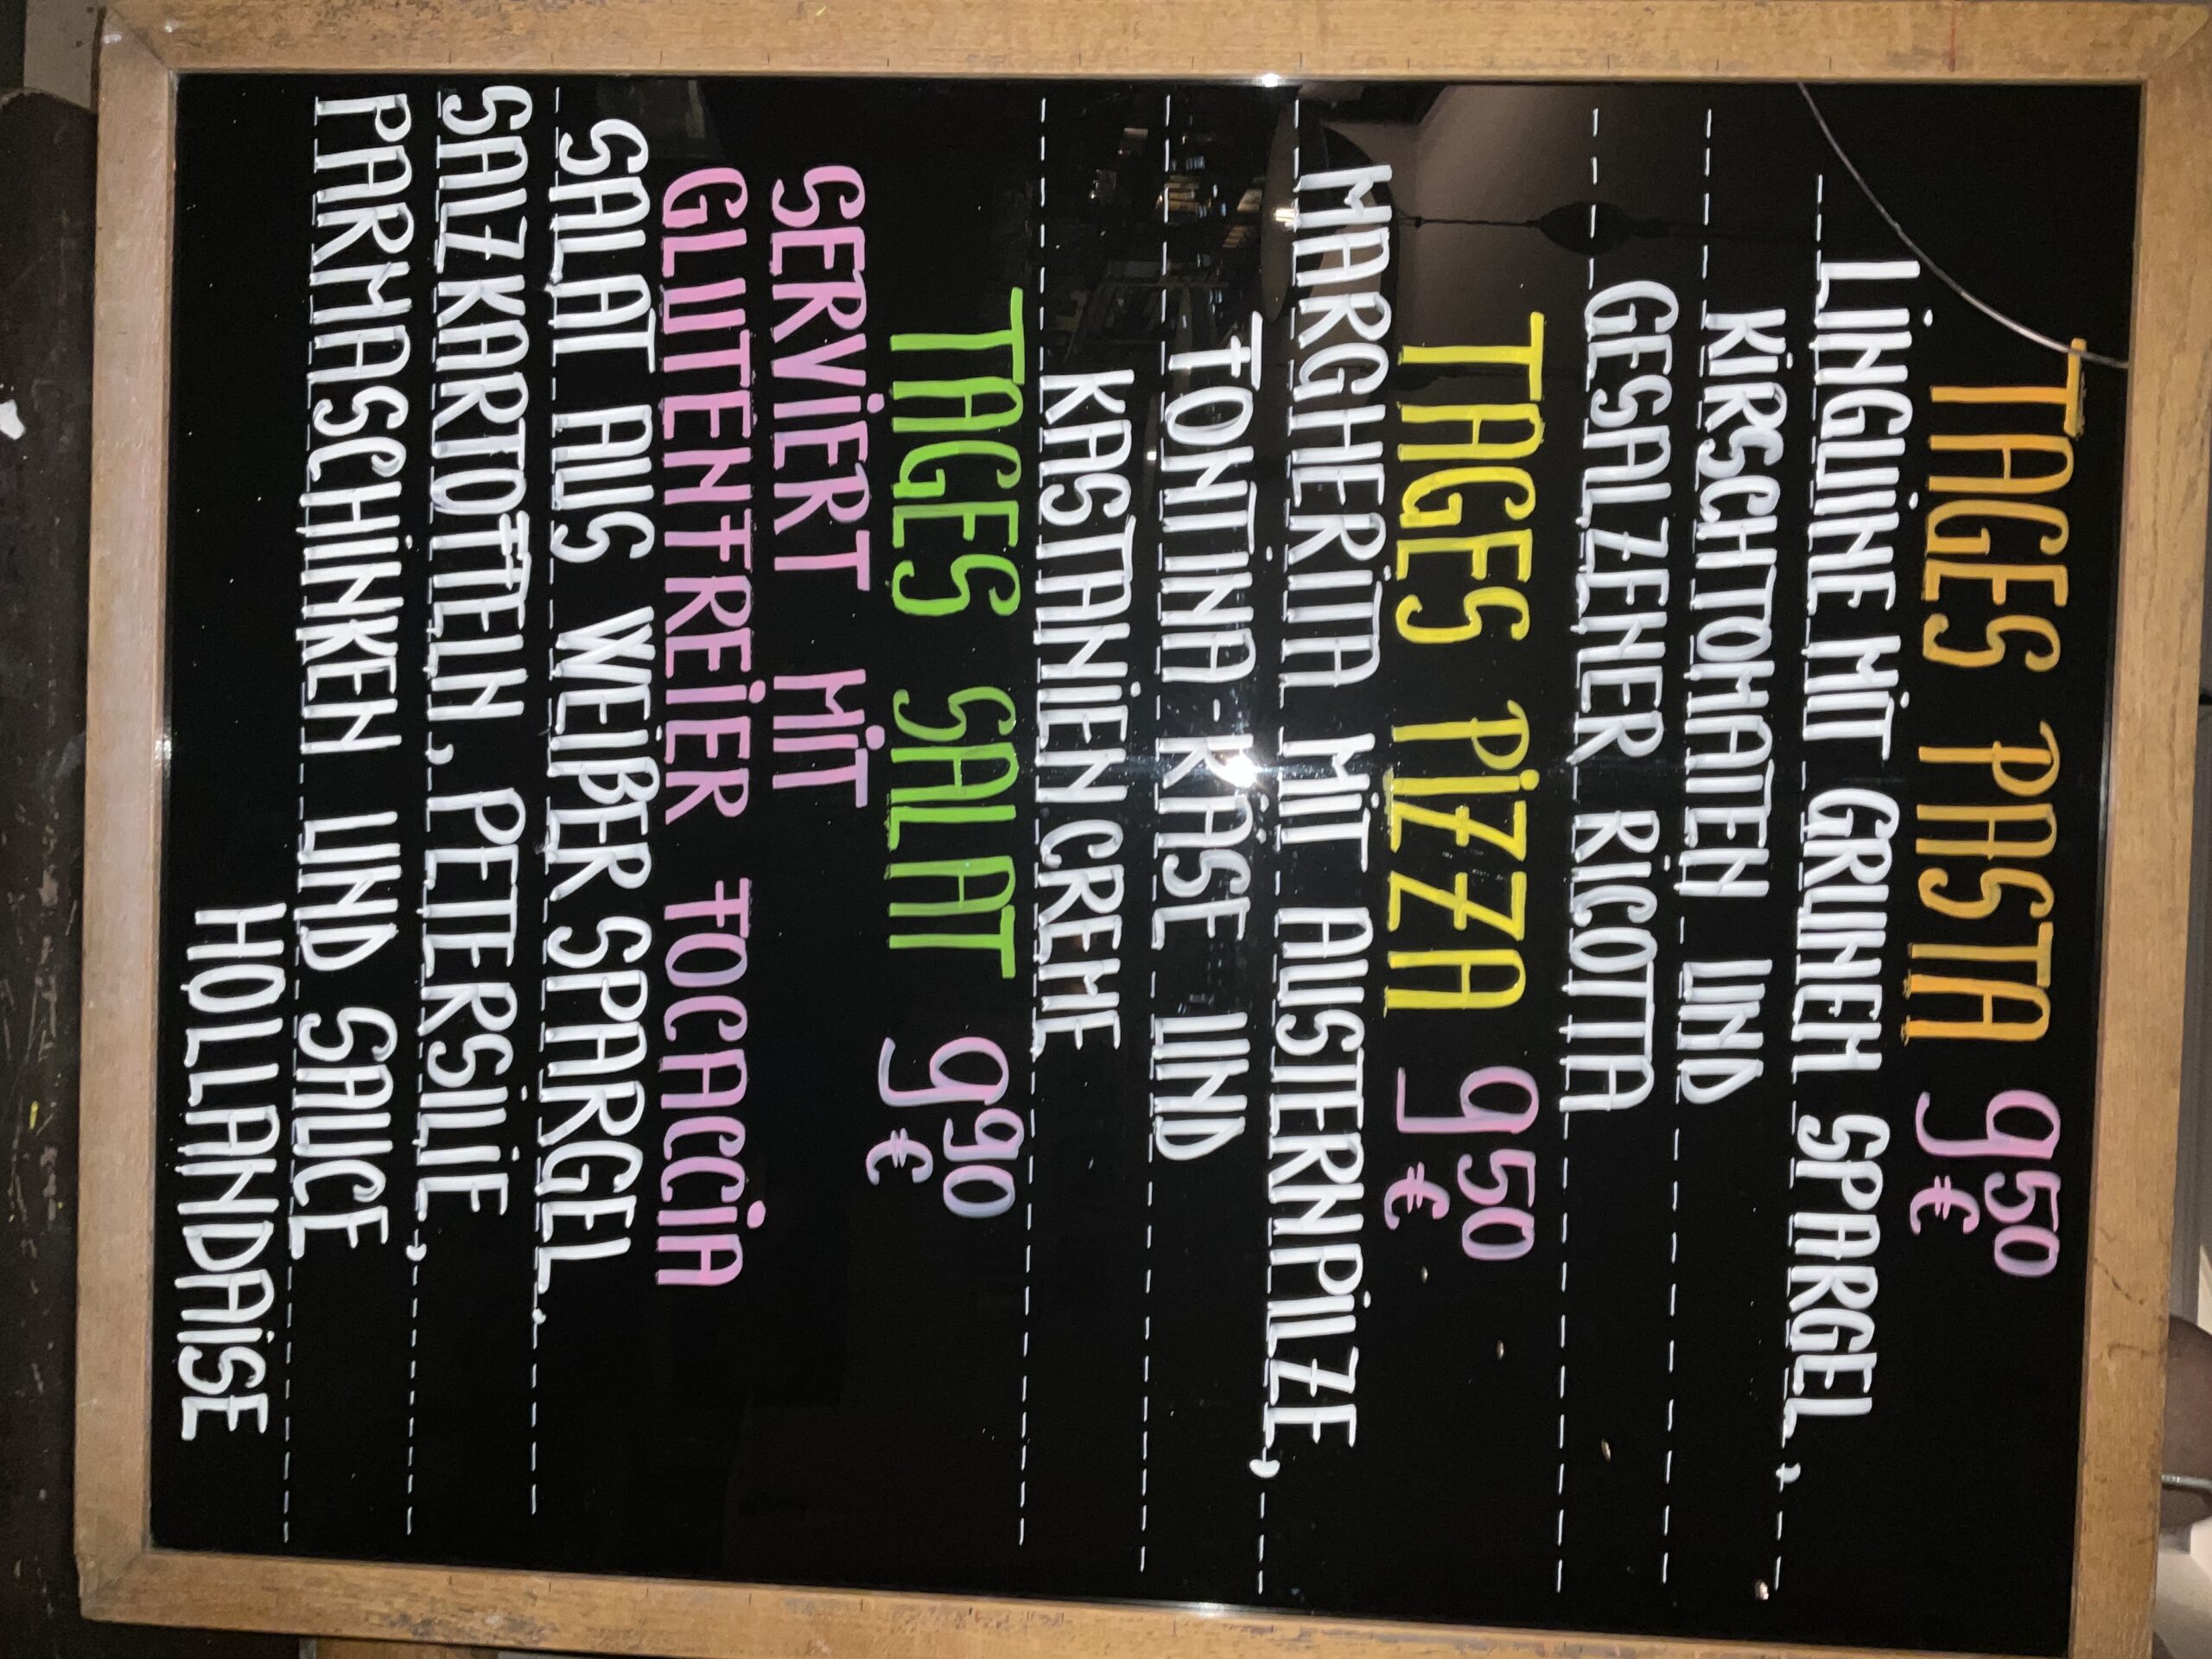 TAGES PASTA 9,50 €
LINGUINE MIT GRÜNEM SPARGEL,
KIRSCHTOMATEN UND
GESALZENER RICOTTA
TAGES PIZZA 9,50 €
MARGHERITA MIT AUSTERNPILZE,
FONTINA-KÄSE UND
KASTANIEN CREME
TAGES SALAT 9,90 €
SERVIERT MIT
GLUTENFREIER FOCACCIA
SALAT AUS WEIßER SPARGEL,
SALZKARTOFFELN, PETERSILIE,
PARMASCHINKEN UND SAUCE
HOLLANDAISE